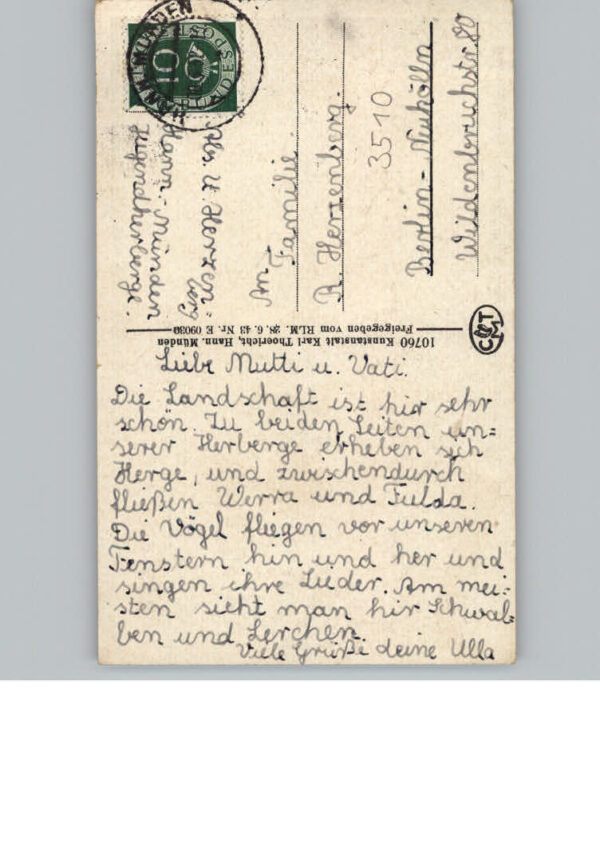 Liebe Mutti u. Vati.
Die Landschaft ist hir sehr
schön. Zu beiden Seiten un=
serer Herberge erheben sich
Herge, und zwischendurch
fließen Werra und Fulda.
Die Vögel fliegen vor unseren
Fenstern hin und her und
singen ihre Lieder. Am mei=
sten sieht man hir Schwal=
ben und Lerchen.
Viele Grüße deine Ulla
10760 Kunstanstalt Karl Thoericht, Hann. Münden
Freigegeben vom RLM. 28. 6. 43 Nr. E 09030
Abs. U. Herzen=
Hann.-Münden
Jugendherberge.
An
Familie
R. Herzenberg.
3510
Berlin-Neukölln
Wildenbruchstr. 80
10
HANN. MÜNDEN